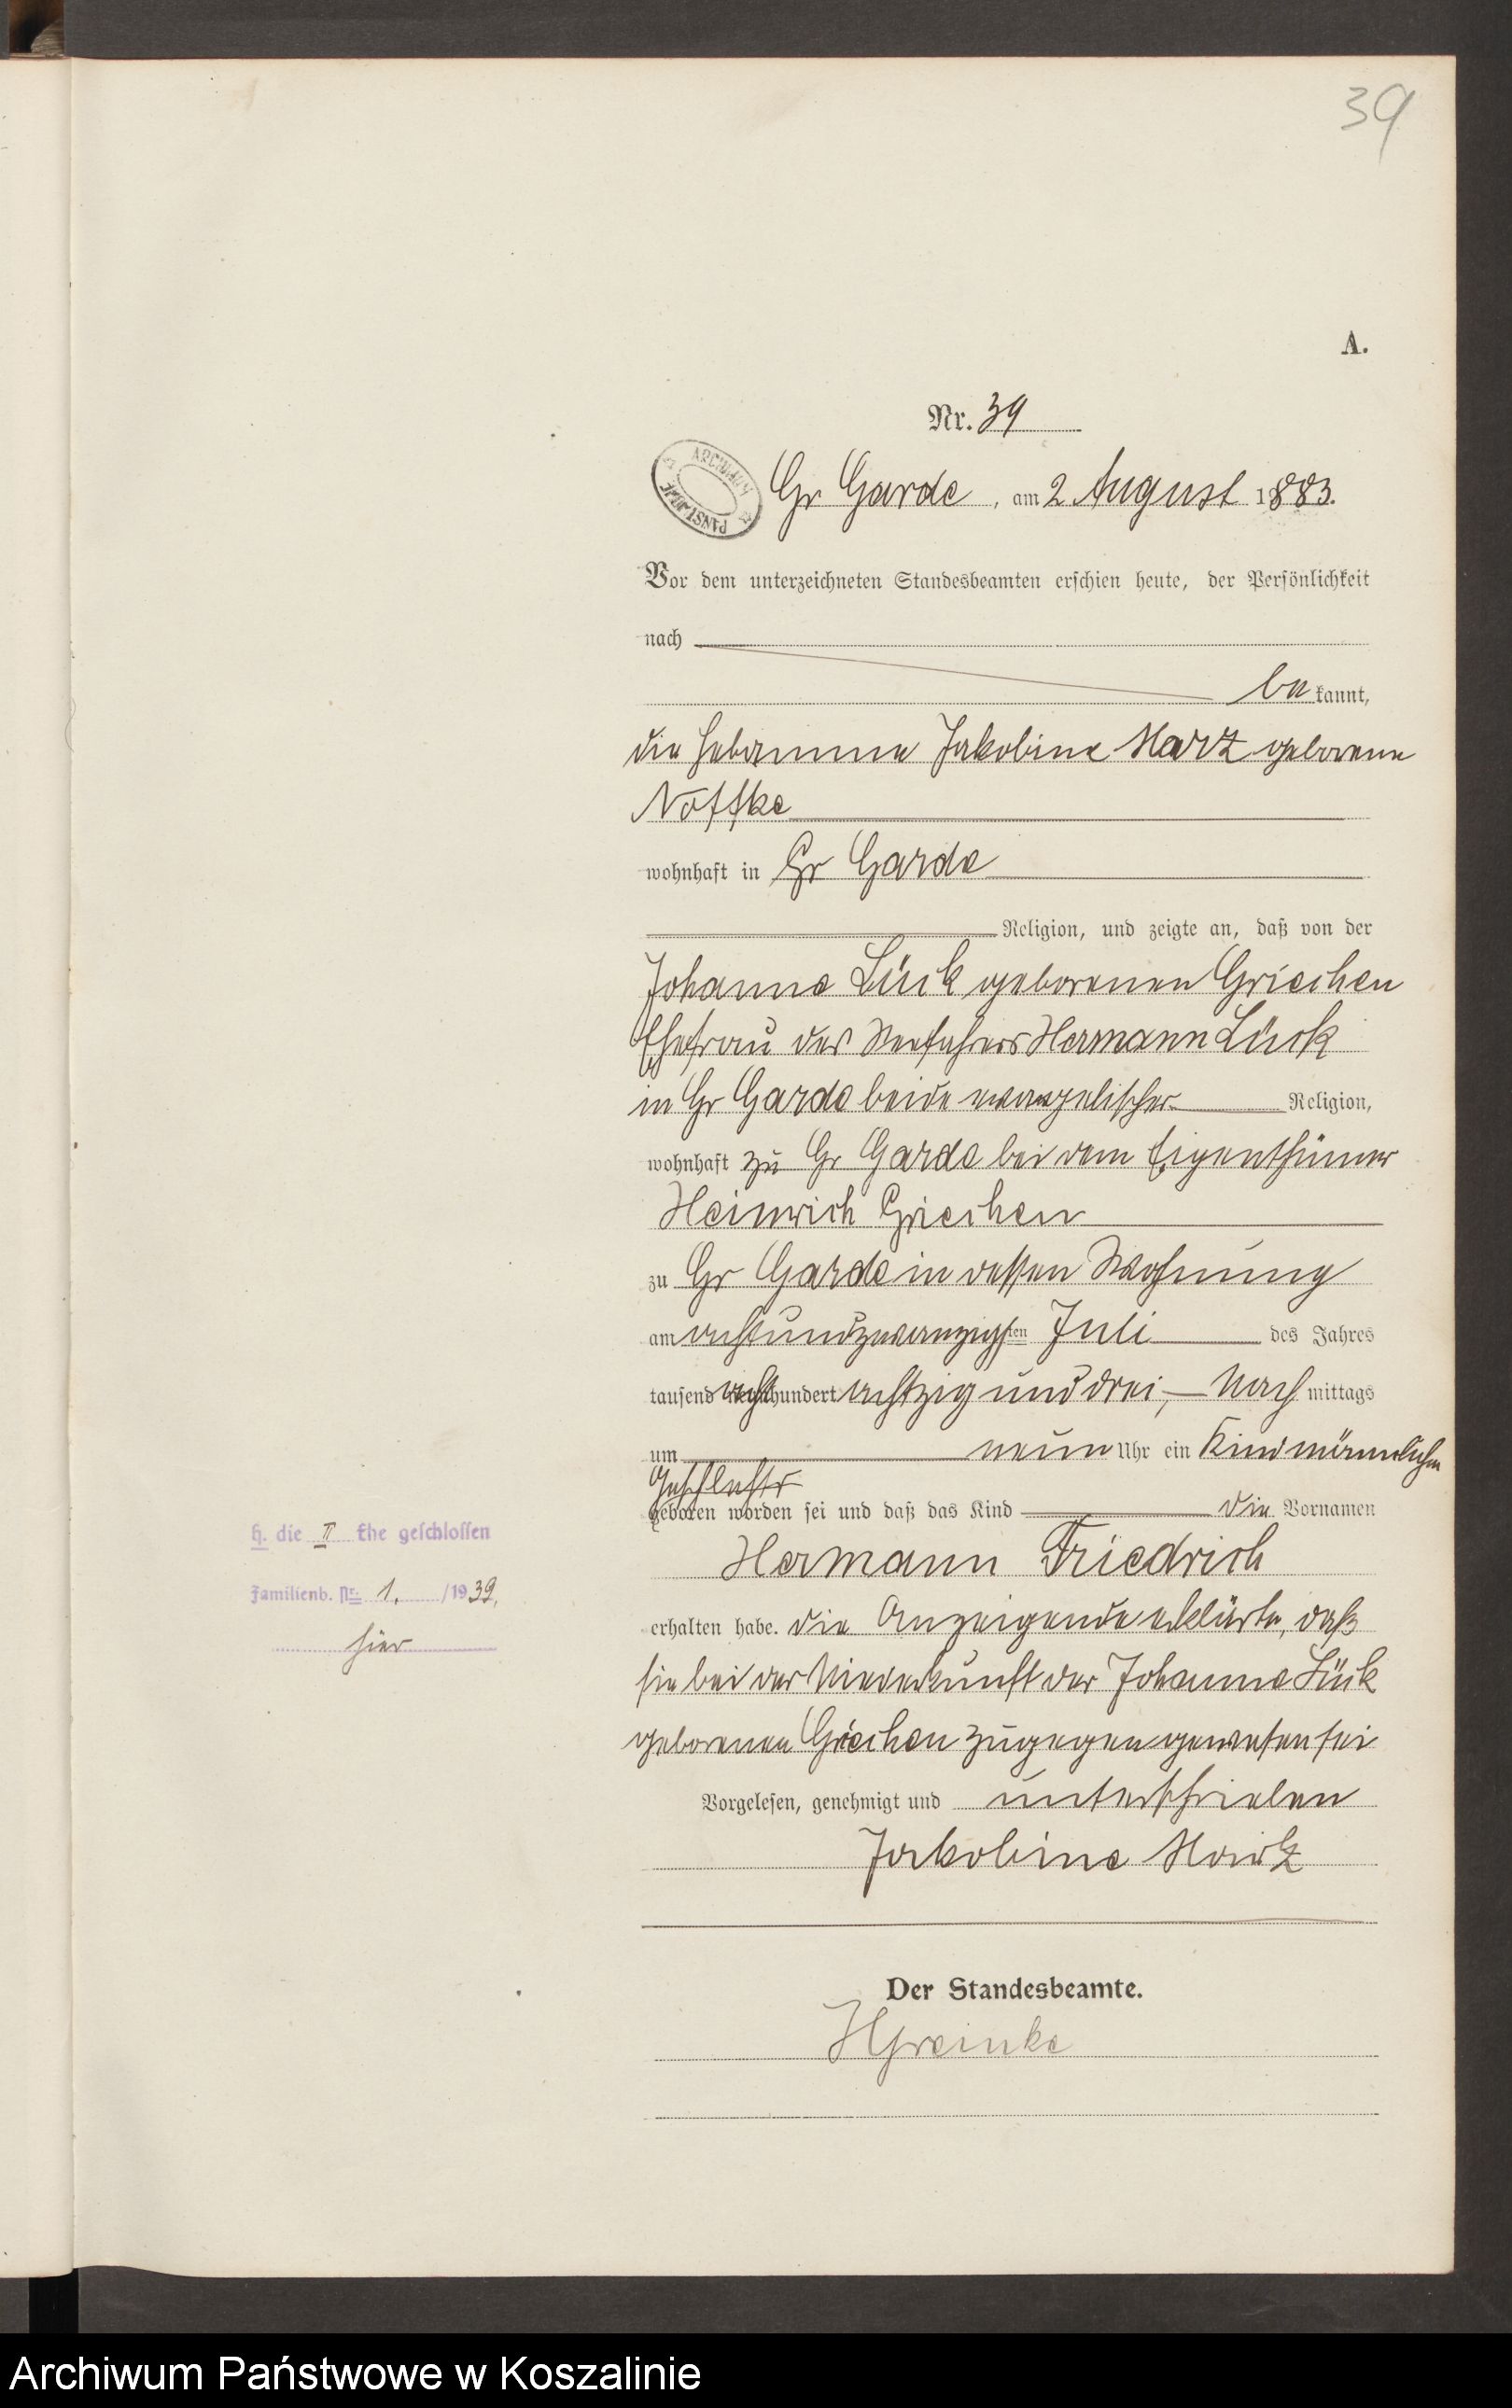 39
A.
Nr. 39
ARCHIWUM PAŃSTWOWE
Gr Garde, am 2 August 1883.
Vor dem unterzeichneten Standesbeamten erschien heute, der Persönlichkeit
nach
bekannt,
die Hebamme Jakobine Marz geborene
Noffke
wohnhaft in Gr Garde
Religion, und zeigte an, daß von der
Johanne Lück geborenen Griechen
Ehefrau des Seefahrers Hermann Lück
in Gr Garde beide evangelischer Religion,
wohnhaft zu Gr Garde bei dem Eigenthümer
Heinrich Griechen
zu Gr Garde in dessen Wohnung
am achtundzwanzigsten Juli des Jahres
tausend achthundert achtzig und drei, Nachmittags
um neun Uhr ein Kind männlichen
Geschlechts
geboren worden sei und daß das Kind die Vornamen
Hermann Friedrich
h. die II Ehe geschlossen
Familienb. Nr. 1. /1939.
hier
erhalten habe. Die Anzeigende erklärte, daß
sie bei der Niederkunft der Johanne Lück
geborenen Griechen zugegen gewesen sei
Vorgelesen, genehmigt und unterschrieben
Jakobine
Der Standesbeamte.
HGreinke
Archiwum Państwowe w Koszalinie